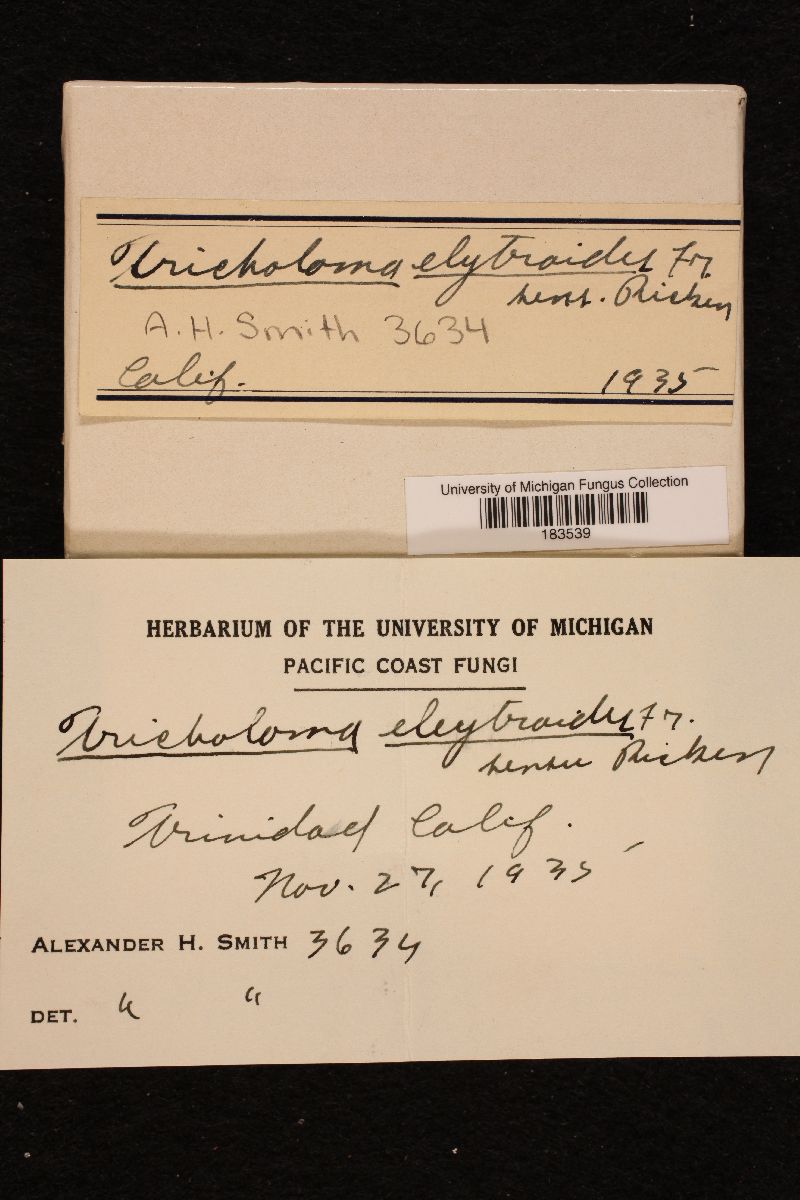 Tricholoma elytroides Fr.
sens. Ricken
A.H. Smith 3634
Calif. 1935
University of Michigan Fungus Collection
183539
HERBARIUM OF THE UNIVERSITY OF MICHIGAN
PACIFIC COAST FUNGI
Tricholoma eleytroides Fr.
sensu Ricken
Trinidad Calif.
Nov. 27, 1935
ALEXANDER H. SMITH 3634
DET. " "